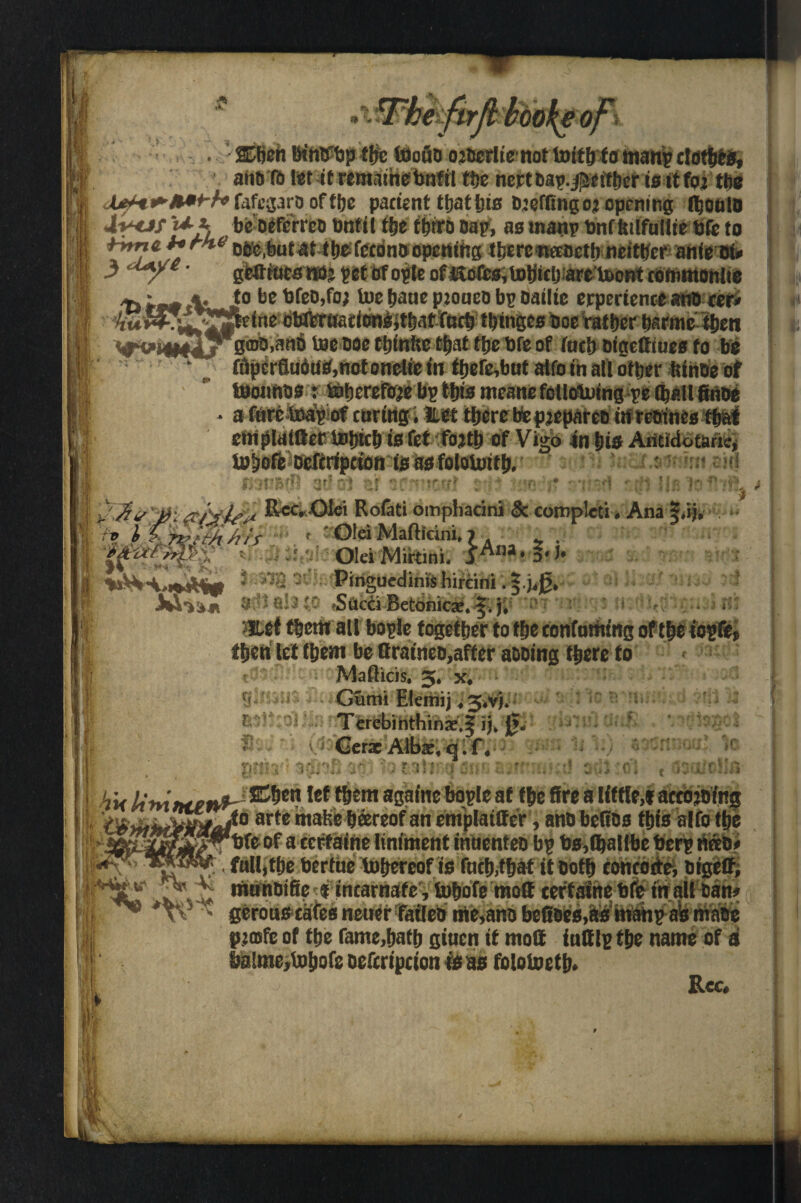 The first booke of
When bind vp the woūd orderlie not with so many clothes,
and so let it remaine vntil the next day. Neither is it for the
safegard of the pacient that his dressing or opening should
be deferred vntil the third day, as many vnskilfullie vse to
doe, but at the second opening there needeth neither anie di-
gestiues nor yet of oyle of Roses, which are woont commonlie
to be vsed, for we haue proued by dailie experience and cer-
teine obseruacions, that such thinges doe rather harme then
good, and we doe thinke that the vse of such digestiues to be
superfluous, not onelie in these, but also in all other kinde of
wounds: wherefore by this meane following ye shall finde
a sure way of curing. Let there be prepared in redines that
emplaister which is set forth of Vigo in his Antidotarie,
whose descripcion is as folowith.
Rec. Olei Rosati omphacini & completi. Ana ℥.ij.
Olei Masticini.
Olei Mirtini. Ana. ℥. j.
Pinguedinis hircini. ℥.j.ß.
Succi Betonicæ. ℥. j.
Let them all boyle together to the consuming of the ioyse,
then let them be strained, after adding there to
Masticis. ʒ. x.
Gumi Elemij. ʒ.vj.
Terebinthinæ. ℥ ij. ß.
Ceræ Albæ. q. s.
Then let them againe boyle at the fire a little, & according
to arte make heereof an emplaister, and besids this also the
vse of a certaine liniment inuented by vs, shallbe very need-
full, the vertue whereof is such, that it doth concocte, digest,
mundifie & incarnate, whose most certaine vse in all dan-
gerous cases neuer failed me, and besides, as many as made
proofe of the same, hath giuen it most iustly the name of a
balme, whose descripcion is as foloweth.
Rec.